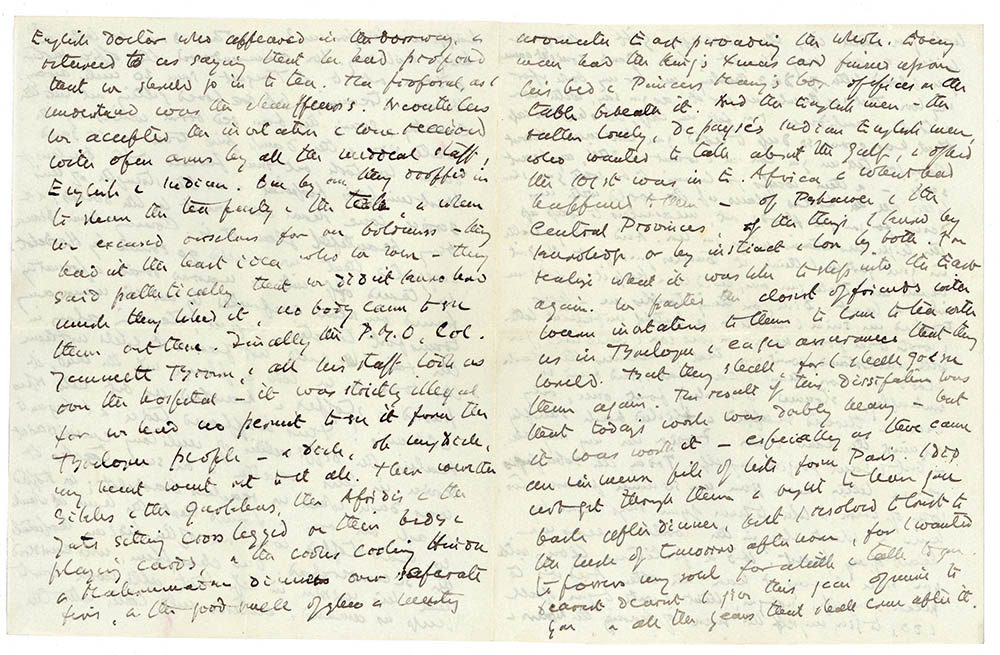 English doctor who appeared in the doorway, &
returned to us saying that he had proposed
that we should go in to tea. The proposal, as I
understood was the chauffeur's. Nevertheless
we accepted the invitation & were received
with open arms by all the medical staff,
English & Indian. One by one they dropped in
to share the tea party & the talk, & when
we excused ourselves for our boldness - they
hadn't the least idea who we were - they
said pathetically that we didn't know how
much they liked it, no body came to see
them out there. Finally the P.M.O., Col.
Bruce, & all his staff took us
over the hospital - it was strictly illegal
for we had no permit to see it from the
Boulogne people - & Dick, oh my Dick,
my heart went out to it all. There were the
Sikhs & the Gurkhas, the Afridis & the
Jats sitting cross legged on their beds &
playing cards, & the cooks cooking Hindu
& Mahommadan dinners over separate
fires, & the good smell of ghee &
aromatic East pervading the whole. Every
man had the King's Xmas card pinned upon
his bed & Princess Mary's box of spices on the
table beneath it. And the English men - the
rather lonely, depaysés Indian English men,
who wanted to talk about the Gulf, & asked
the 101st was in E. Africa & what had
happened to them - of Peshawar & the
Central Provinces, of the things I know by
knowledge or by instinct & love by both. I'm
realise what it was like to step into the East
again. We parted the closest of friends with
warm invitations to them to come to tea with
us in Boulogne & eager assurances that they
would. But they shall, for I shall go & see
them again. The result of this dissipation was
that today's work was doubly heavy - but
it was worth it - especially as there came
an immense pile of lists from Paris. I did
not get through them & ought to have gone
back after dinner, but I resolved to trust to
the luck of tomorrow afternoon, for I wanted
to possess my soul for a little & talk to you.
Dearest dearest I give this year of mine to
you & all the years that shall come after it.